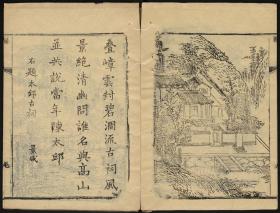 疊嶂雲封碧澗流古祠風
景絕清幽問誰名與高山
並共說當年陳太邱
右題太邱古祠